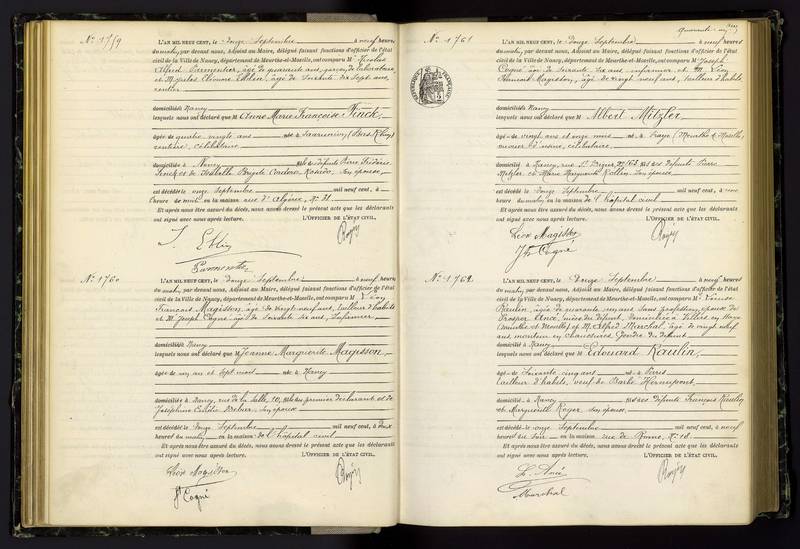 No 1759
L'AN MIL NEUF CENT, le douze Septembre à neuf heures
du matin, par devant nous, Adjoint au Maire, délégué faisant fonctions d'officier de l'état
civil de la Ville de Nancy, département de Meurthe-et-Moselle, ont comparu M Nicolas
Alfred Parmentier, âgé de quarante ans, garçon de laboratoire,
et M. Jules Etienne âgé de soixante dix sept ans,
rentier
domiciliés à Nancy
lesquels nous ont déclaré que M Anne Marie Françoise Finck,
âgée de quatre vingts ans née à (Bas Rhin)
rentière, célibataire
domiciliée à Nancy fille de défunts
Finck et de Brigite son épouse,
est décédée le onze Septembre mil neuf cent, à
heure du soir en la maison rue d'Algérie, No 31.
Et après nous être assuré du décès, nous avons dressé le présent acte que les déclarants
ont signé avec nous après lecture. L'OFFICIER DE L'ÉTAT CIVIL,
Parmentier
No 1760
L'AN MIL NEUF CENT, le douze Septembre à neuf heures
du matin, par devant nous, Adjoint au Maire, délégué faisant fonctions d'officier de l'état
civil de la Ville de Nancy, département de Meurthe-et-Moselle, ont comparu M Léon
François Magisson, âgé de vingt neuf ans, tailleur d'habits
et M. Joseph Cogné âgé de soixante six ans, infirmier
domiciliés à Nancy
lesquels nous ont déclaré que M Jeanne Marguerite Magisson,
âgée de un an et sept mois née à Nancy
domiciliée à Nancy, rue de la Salle, 10, fille du premier déclarant et de
Joséphine son épouse
est décédée le onze Septembre mil neuf cent, à deux
heures du matin en la maison de l'hôpital civil
Et après nous être assuré du décès, nous avons dressé le présent acte que les déclarants
ont signé avec nous après lecture. L'OFFICIER DE L'ÉTAT CIVIL,
Léon Magisson
Jh Cogné
No 1761
RÉPUBLIQUE FRANÇAISE
L'AN MIL NEUF CENT, le douze Septembre à neuf heures
du matin, par devant nous, Adjoint au Maire, délégué faisant fonctions d'officier de l'état
civil de la Ville de Nancy, département de Meurthe-et-Moselle, ont comparu M Joseph
Cogné âgé de soixante six ans, infirmier et M. Léon
François Magisson, âgé de vingt neuf ans, tailleur d'habits
domiciliés à Nancy
lesquels nous ont déclaré que M Albert Mitzler,
âgé de vingt ans et onze mois né à (Meurthe & Moselle)
célibataire
domicilié à Nancy, rue fils des défunts Pierre
Mitzler et Marie Marguerite son épouse
est décédé le douze Septembre mil neuf cent, à
heure du matin en la maison de l'hôpital civil
Et après nous être assuré du décès, nous avons dressé le présent acte que les déclarants
ont signé avec nous après lecture. L'OFFICIER DE L'ÉTAT CIVIL,
Léon Magisson
Jh Cogné
No 1762
L'AN MIL NEUF CENT, le Douze Septembre à neuf heures
du matin, par devant nous, Adjoint au Maire, délégué faisant fonctions d'officier de l'état
civil de la Ville de Nancy, département de Meurthe-et-Moselle, ont comparu M Louise
Raulin, âgée de quarante un ans sans profession, épouse de
Prosper Ancé, nièce du défunt, domiciliée à Villers en Haye
(Meurthe et Moselle) et M. Alfred Marchal, âgé de vingt neuf
ans, monteur en chaussures, gendre du défunt
domicilié à Nancy
lesquels nous ont déclaré que M Edouard Raulin,
âgé de Soixante cinq ans né à Pierre
tailleur d'habits, veuf de Barbe
domicilié à Nancy fils des défunts François Raulin
et Marguerite Royer, son épouse
est décédé le onze Septembre mil neuf cent, à neuf
heures du soir en la maison rue de No 18.
Et après nous être assuré du décès, nous avons dressé le présent acte que les déclarants
ont signé avec nous après lecture. L'OFFICIER DE L'ÉTAT CIVIL,
L. Ancé
Marchal